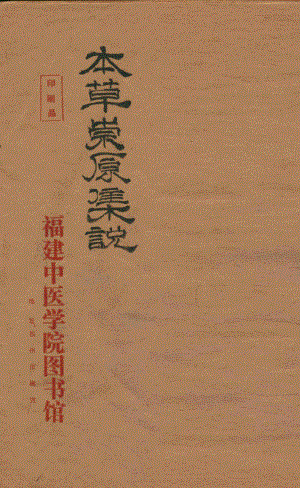 本草崇原集說
福建中医学院图书馆